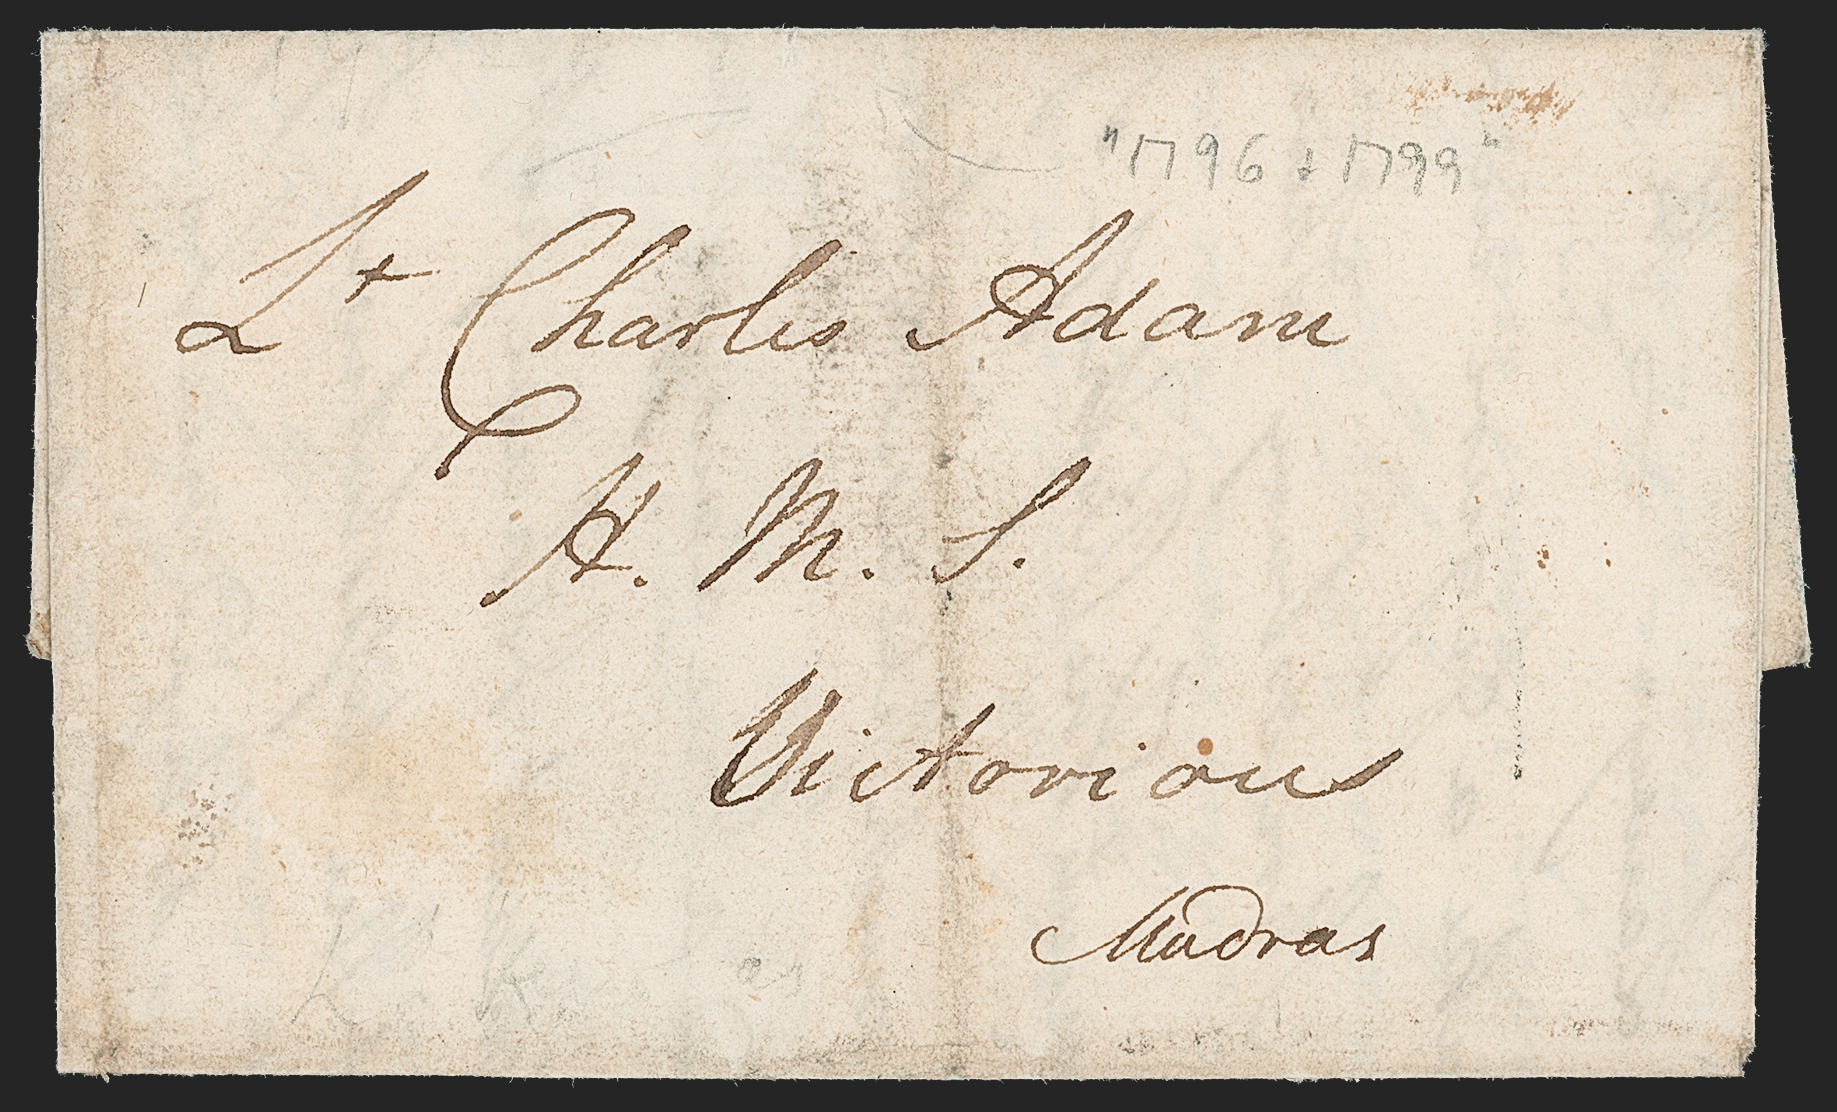 "1796 + 1799"
Lt Charles Adam
H. M. S.
Victorious
Madras